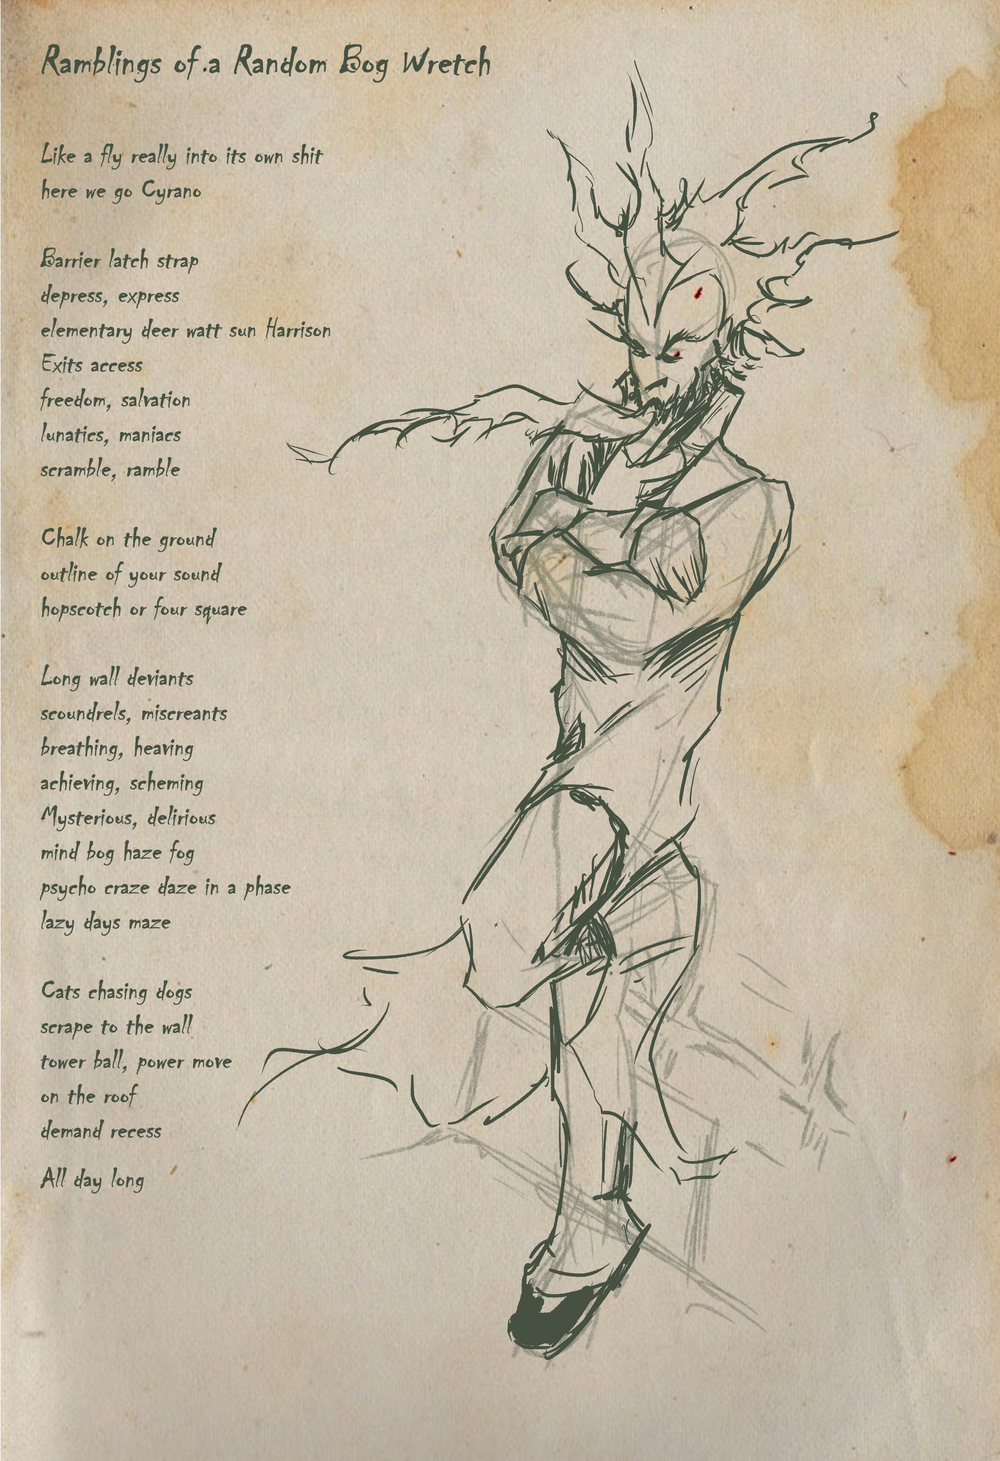 Ramblings of a Random Bog Wretch
Like a fly really into its own shit
here we go Cyrano
Barrier latch strap
depress, express
elementary deer watt sun Harrison
Exits access
freedom, salvation
lunatics, maniacs
scramble, ramble
Chalk on the ground
outline of your sound
hopscotch or four square
Long wall deviants
scoundrels, miscreants
breathing, heaving
achieving, scheming
Mysterious, delirious
mind bog haze fog
psycho craze daze in a phase
lazy days maze
Cats chasing dogs
scrape to the wall
tower ball, power move
on the roof
demand recess
All day long